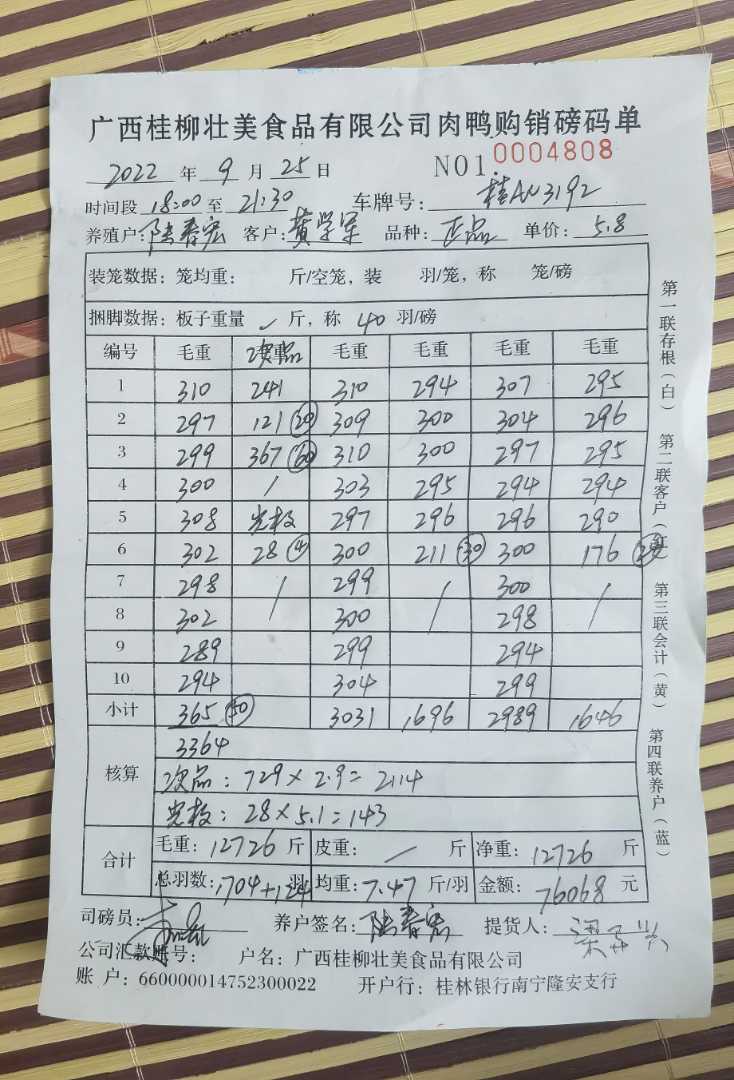 广西桂柳壮美食品有限公司肉鸭购销磅码单
2022 年 9 月 25 日 NO1. 0004808
时间段 18:00 至 21:30 车牌号: 桂AU3192
养殖户: 陆春宏 客户: 黄学军 品种: 正品 单价: 5.8
装笼数据: 笼均重: 斤/空笼, 装 羽/笼, 称 笼/磅
捆脚数据: 板子重量 / 斤, 称 40 羽/磅
编号 毛重 次品 毛重 毛重 毛重 毛重
1 310 241 310 294 307 295
2 297 121 (20) 309 300 304 296
3 299 367 (60) 310 300 297 295
4 300 / 303 295 294 294
5 308 光板 297 296 296 290
6 302 28 (4) 300 211 (30) 300 176
7 298 / 299 / 300 /
8 302 300 298
9 289 299 294
10 294 304 299
小计 365 (50) 3031 1696 2989 1646
核算 3364
次品: 729×2.9=2114
光板: 28×5.1=143
合计 毛重: 12726 斤 皮重: / 斤 净重: 12726 斤
总羽数: 1704+124 羽 均重: 7.47 斤/羽 金额: 76068 元
司磅员: 养户签名: 陆春宏 提货人:
公司汇款账号: 户名: 广西桂柳壮美食品有限公司
账 户: 660000014752300022 开户行: 桂林银行南宁隆安支行
第一联存根(白) 第二联客户(红) 第三联会计(黄) 第四联养户(蓝)